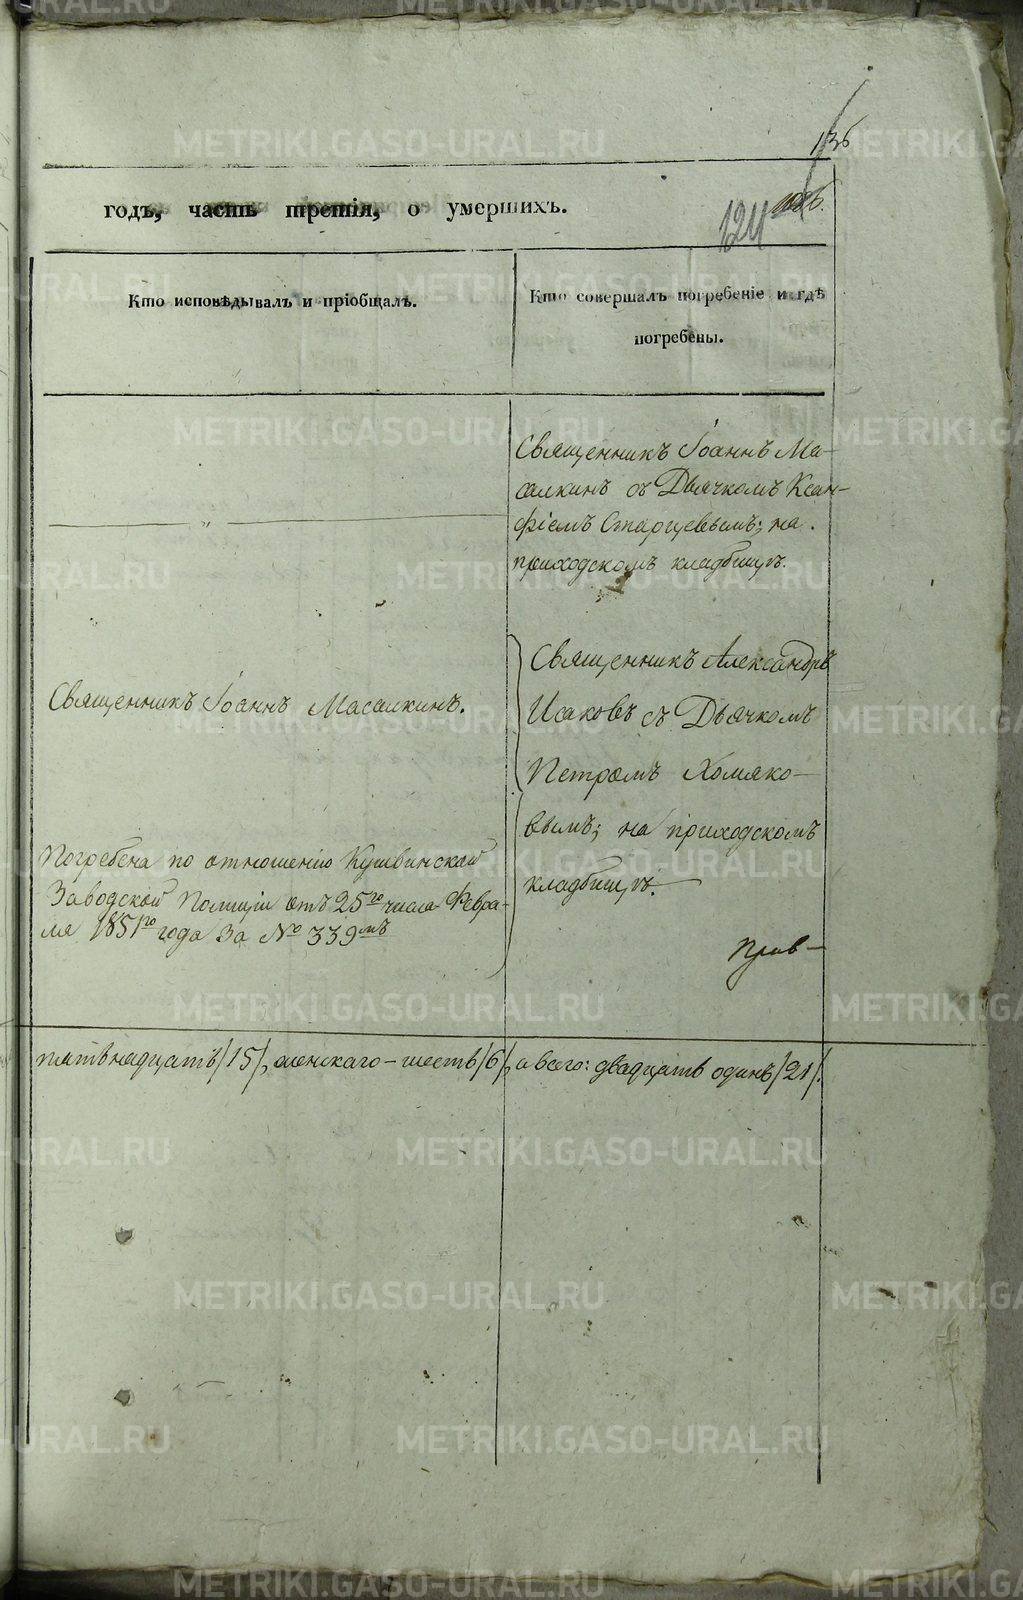 136
годъ, часть третія, о умершихъ.
124
Кто исповѣдывалъ и пріобщалъ.
Кто совершалъ погребеніе и гдѣ
погребены.
Священникъ Іоаннъ Ма-
салкинъ съ Дьячкомъ Ксан-
фіемъ Старцевымъ; на
приходскомъ кладбищѣ.
„
Священникъ Іоаннъ Масалкинъ.
Священникъ Александръ
Исаковъ съ Дьячкомъ
Петромъ Хомяко-
вымъ; на приходскомъ
кладбищѣ.
Погребена по отношенію Кушвинской
Заводской Полиціи отъ 25го числа Февра-
ля 1851го года за № 339мъ
пятьнадцать /15/, женскаго – шесть /6/, а всего: двадцать одинъ /21/.
METRIKI.GASO-URAL.RU